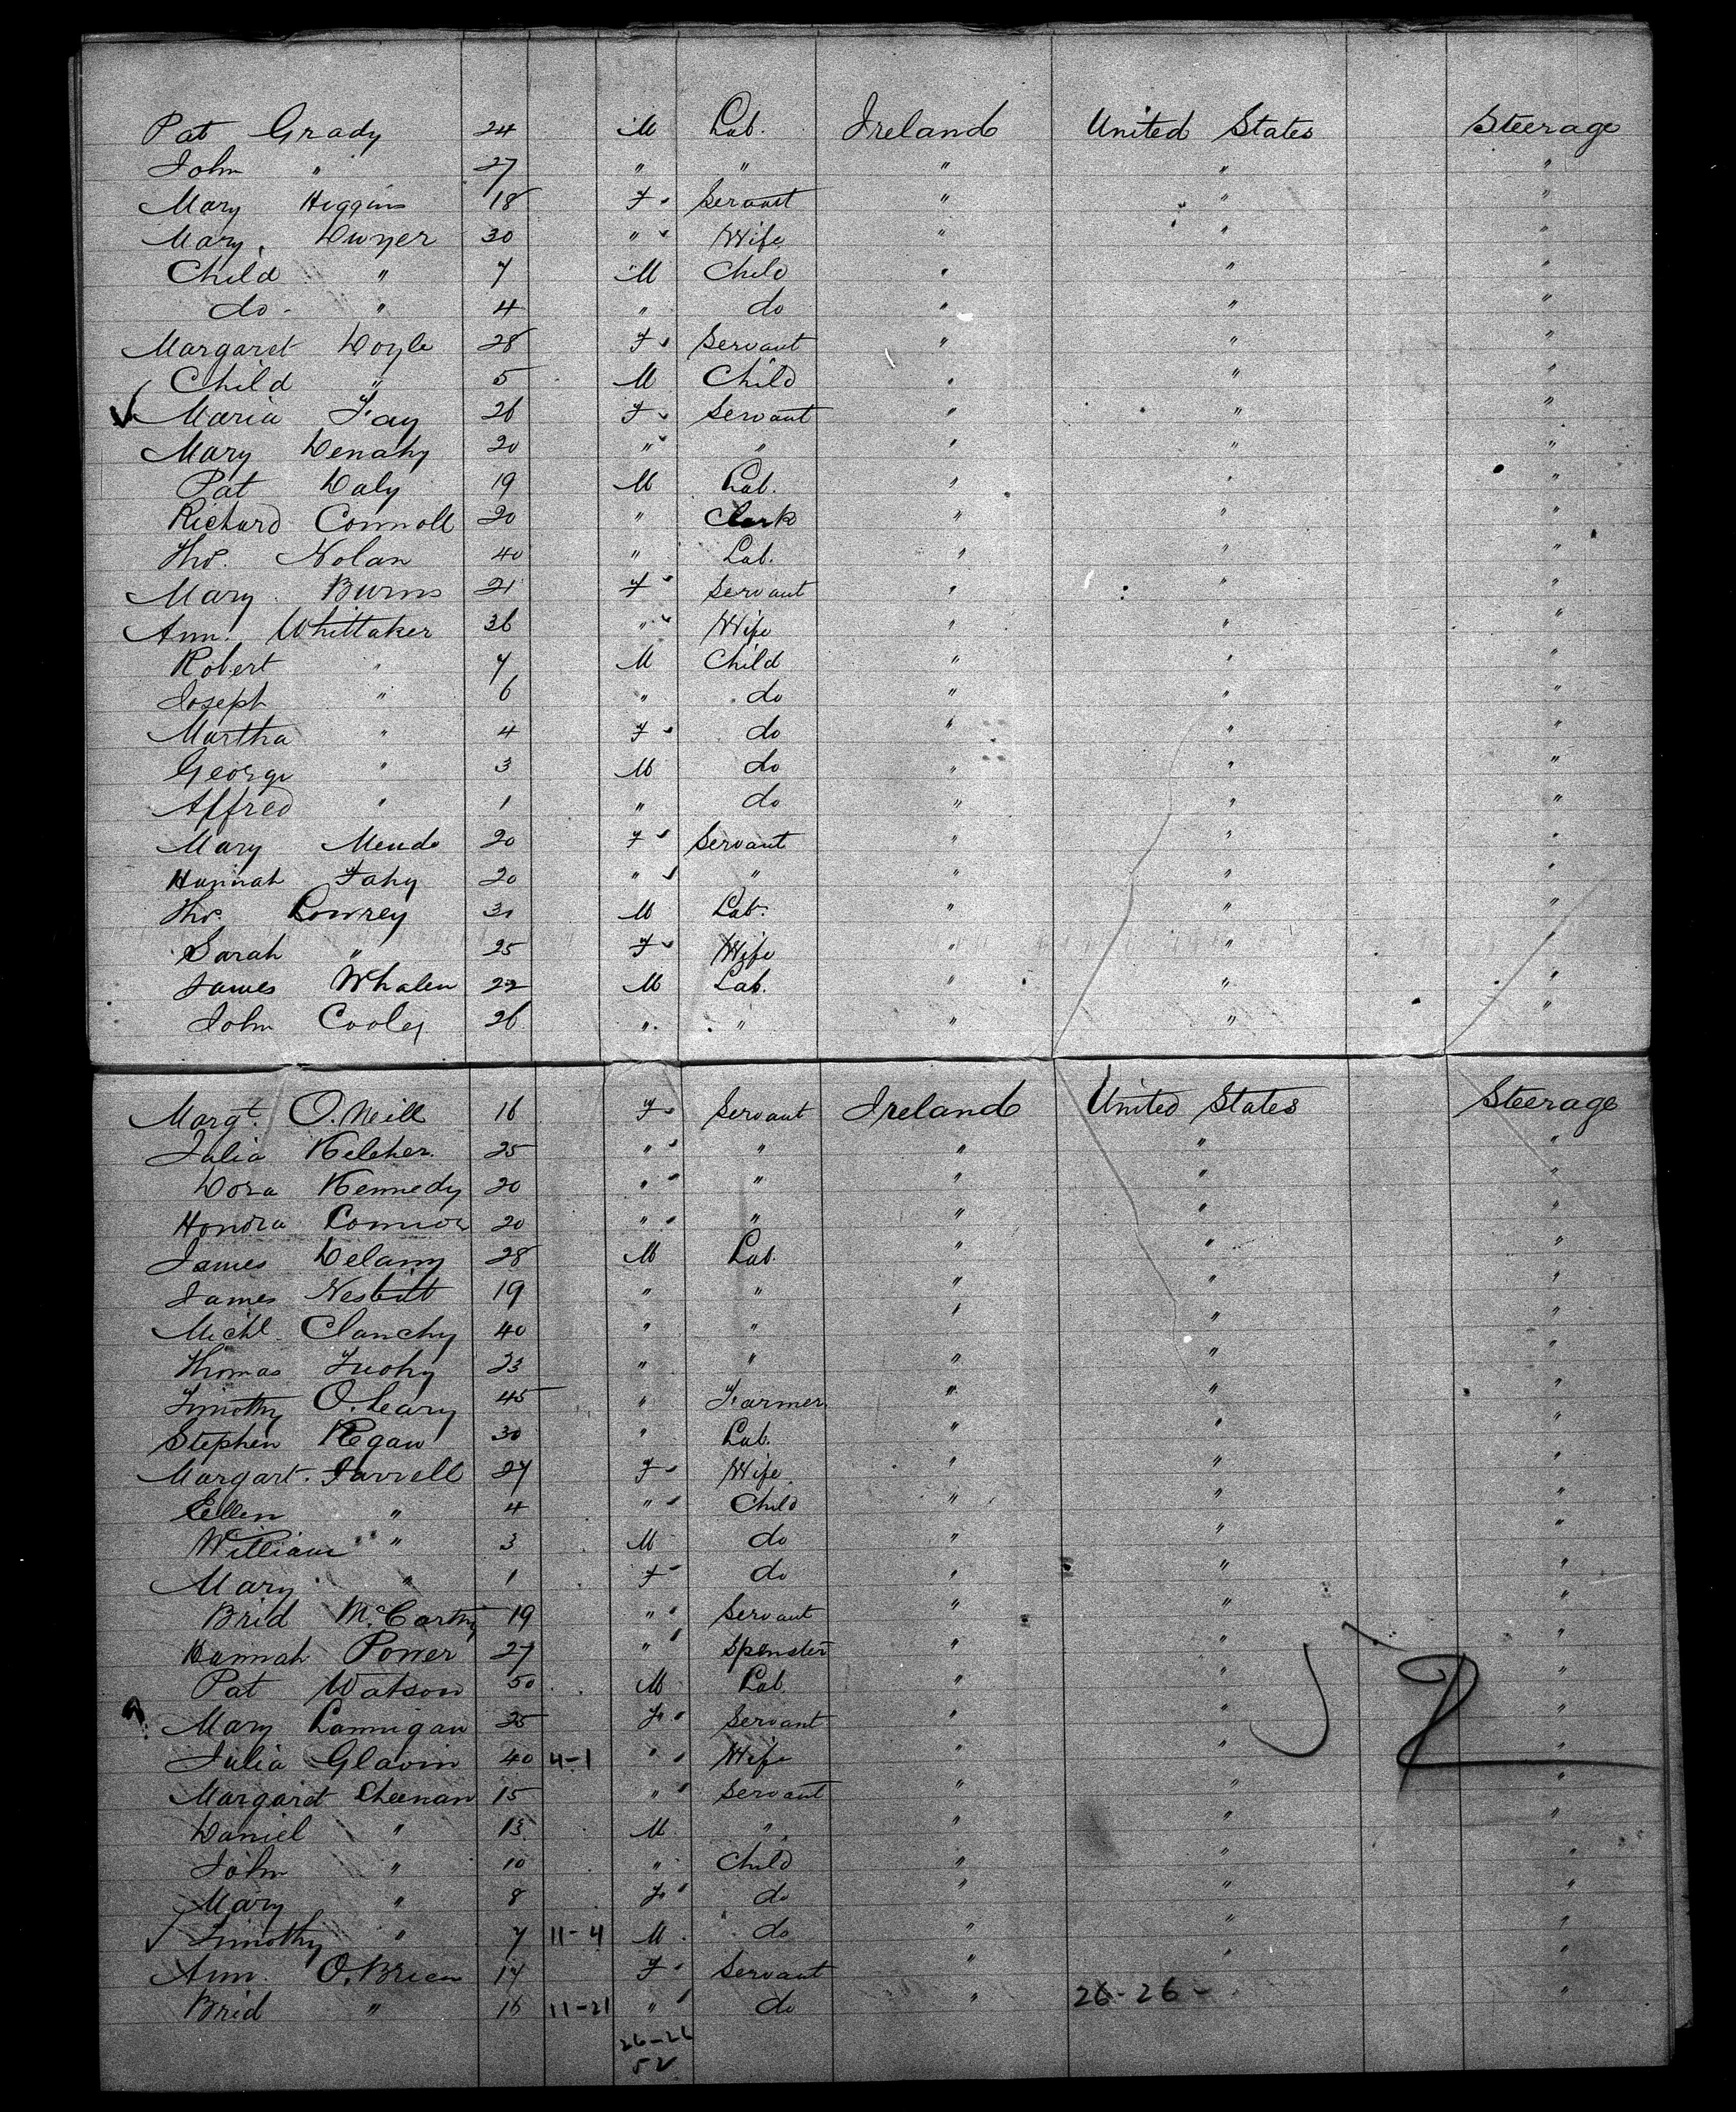 Pat Grady 24 M Lab. Ireland United States Steerage
John " 27 " " " " "
Mary Higgins 18 F Servant " " "
Mary Dwyer 30 " Wife " " "
Child " 7 M Child " " "
do " 4 " do " " "
Margaret Doyle 28 F Servant " " "
Child " 5 M Child " " "
Maria Fay 26 F Servant " " "
Mary Denahy 20 " " " " "
Pat Daly 19 M Lab. " " "
Richard Connoll 20 " Clark " " "
Thos. Nolan 40 " Lab. " " "
Mary Burns 21 F Servant " " "
Ann. Whittaker 36 " Wife " " "
Robert " 7 M Child " " "
Joseph " 6 " do " " "
Martha " 4 F do " " "
George " 3 M do " " "
Alfred " 1 " do " " "
Mary 20 F Servant " " "
Hannah Fahy 20 " " " " "
Thos. Lowrey 31 M Lab. " " "
Sarah " 25 F Wife " " "
James Whalen 22 M Lab. " " "
John Cooley 26 " " " " "
Margt. O.Neill 16 F Servant Ireland United States Steerage
Julia Keleher 25 " " " " "
Dora Kennedy 20 " " " " "
Honora Connor 20 " " " " "
James Delany 28 M Lab. " " "
James Nesbitt 19 " " " " "
Michl. Clanchy 40 " " " " "
Thomas Tuohy 23 " " " " "
Timothy O.Leary 45 " Farmer " " "
Stephen Regan 30 " Lab. " " "
Margart. Farrell 27 F Wife " " "
Ellen " 4 " Child " " "
William " 3 M do " " "
Mary " 1 F do " " "
Brid McCarthy 19 " Servant " " "
Hannah Power 27 " Spenster " " "
Pat Watson 50 M Lab " " "
Mary Lannigan 25 F Servant " " "
Julia Glavin 40 4-1 " Wife " " "
Margaret Sheenan 15 " Servant " " "
Daniel " 13 M " " " "
John " 10 " Child " " "
Mary " 8 F do " " "
Timothy " 7 11-4 M do " " "
Ann. O.Brien 17 F Servant " " "
Brid " 16 11-21 " do " 26-26- " "
26-26
52